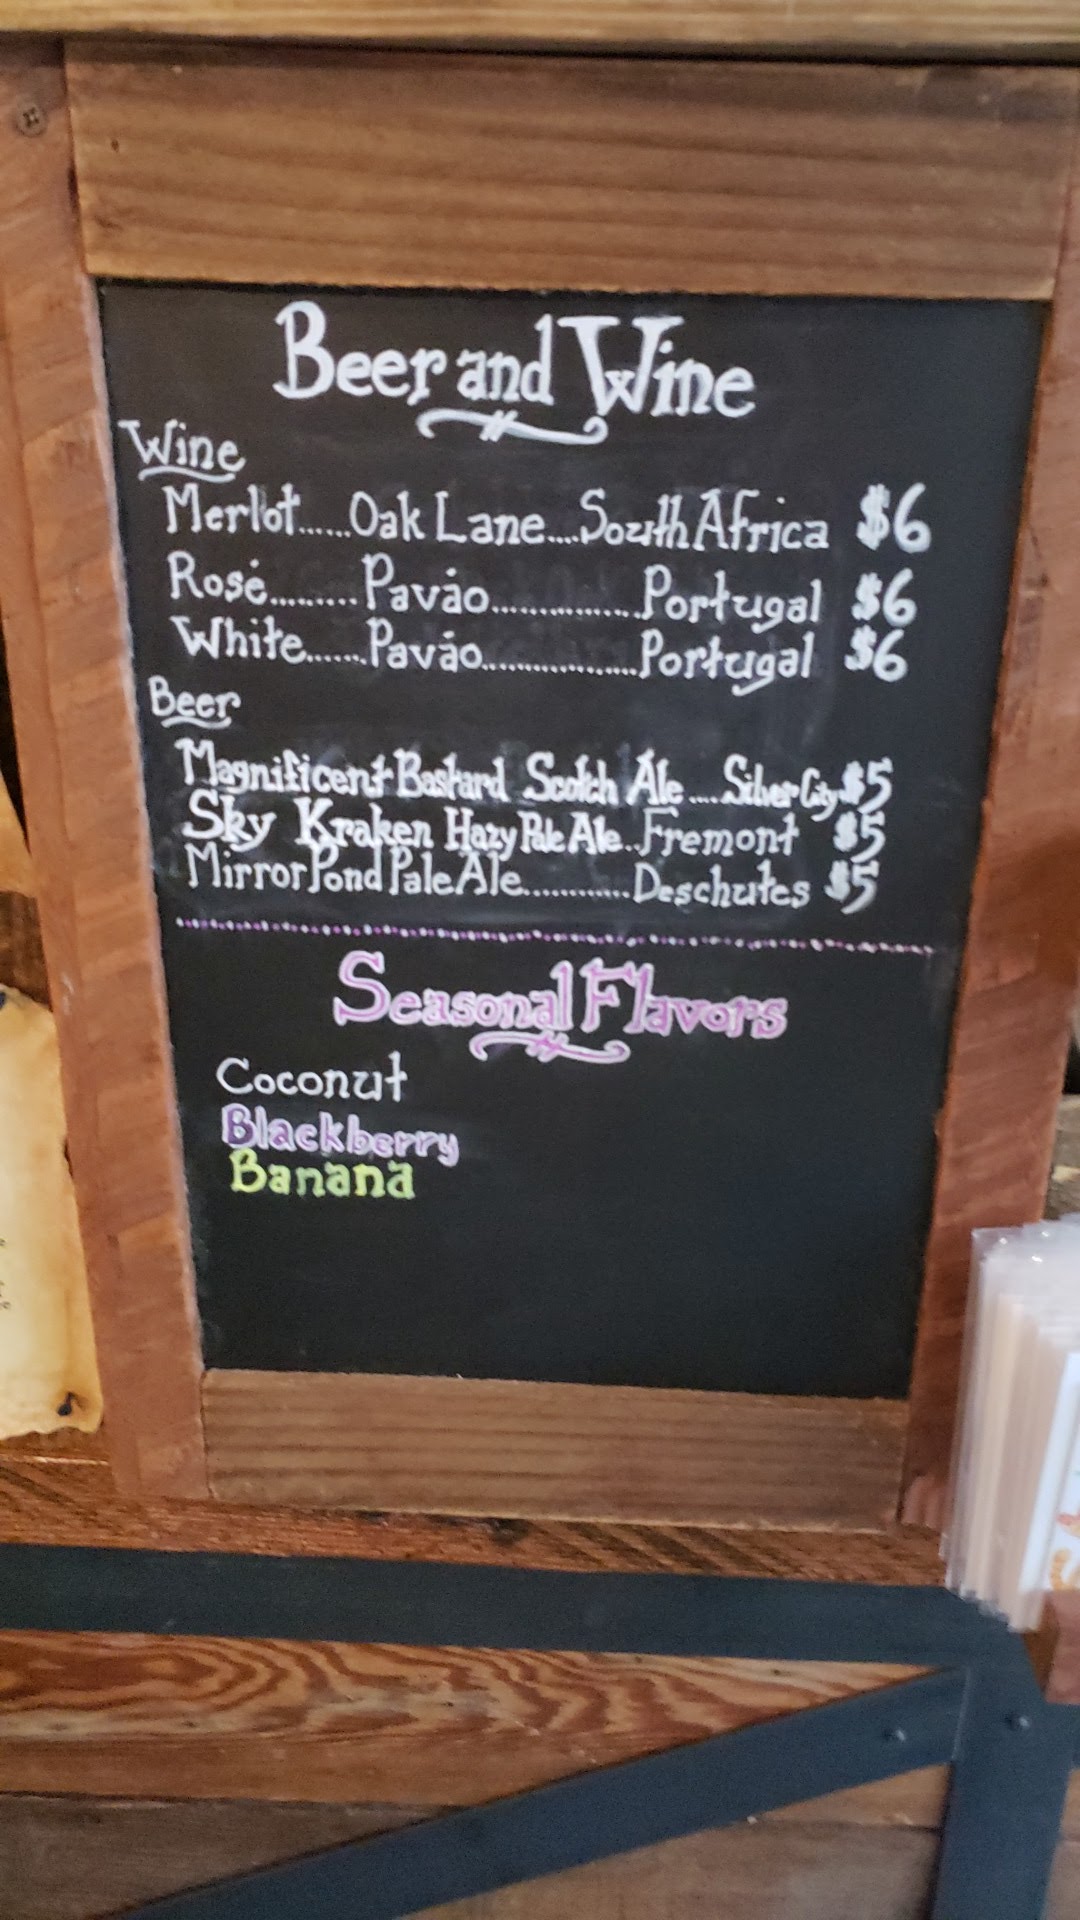 Beer and Wine
Wine
Merlot......Oak Lane....South Africa $6
Rosé.........Pavão...............Portugal $6
White.......Pavão................Portugal $6
Beer
Magnificent Bastard Scotch Ale....Silver City $5
Sky Kraken Hazy Pale Ale..Fremont $5
Mirror Pond Pale Ale............Deschutes $5
Seasonal Flavors
Coconut
Blackberry
Banana